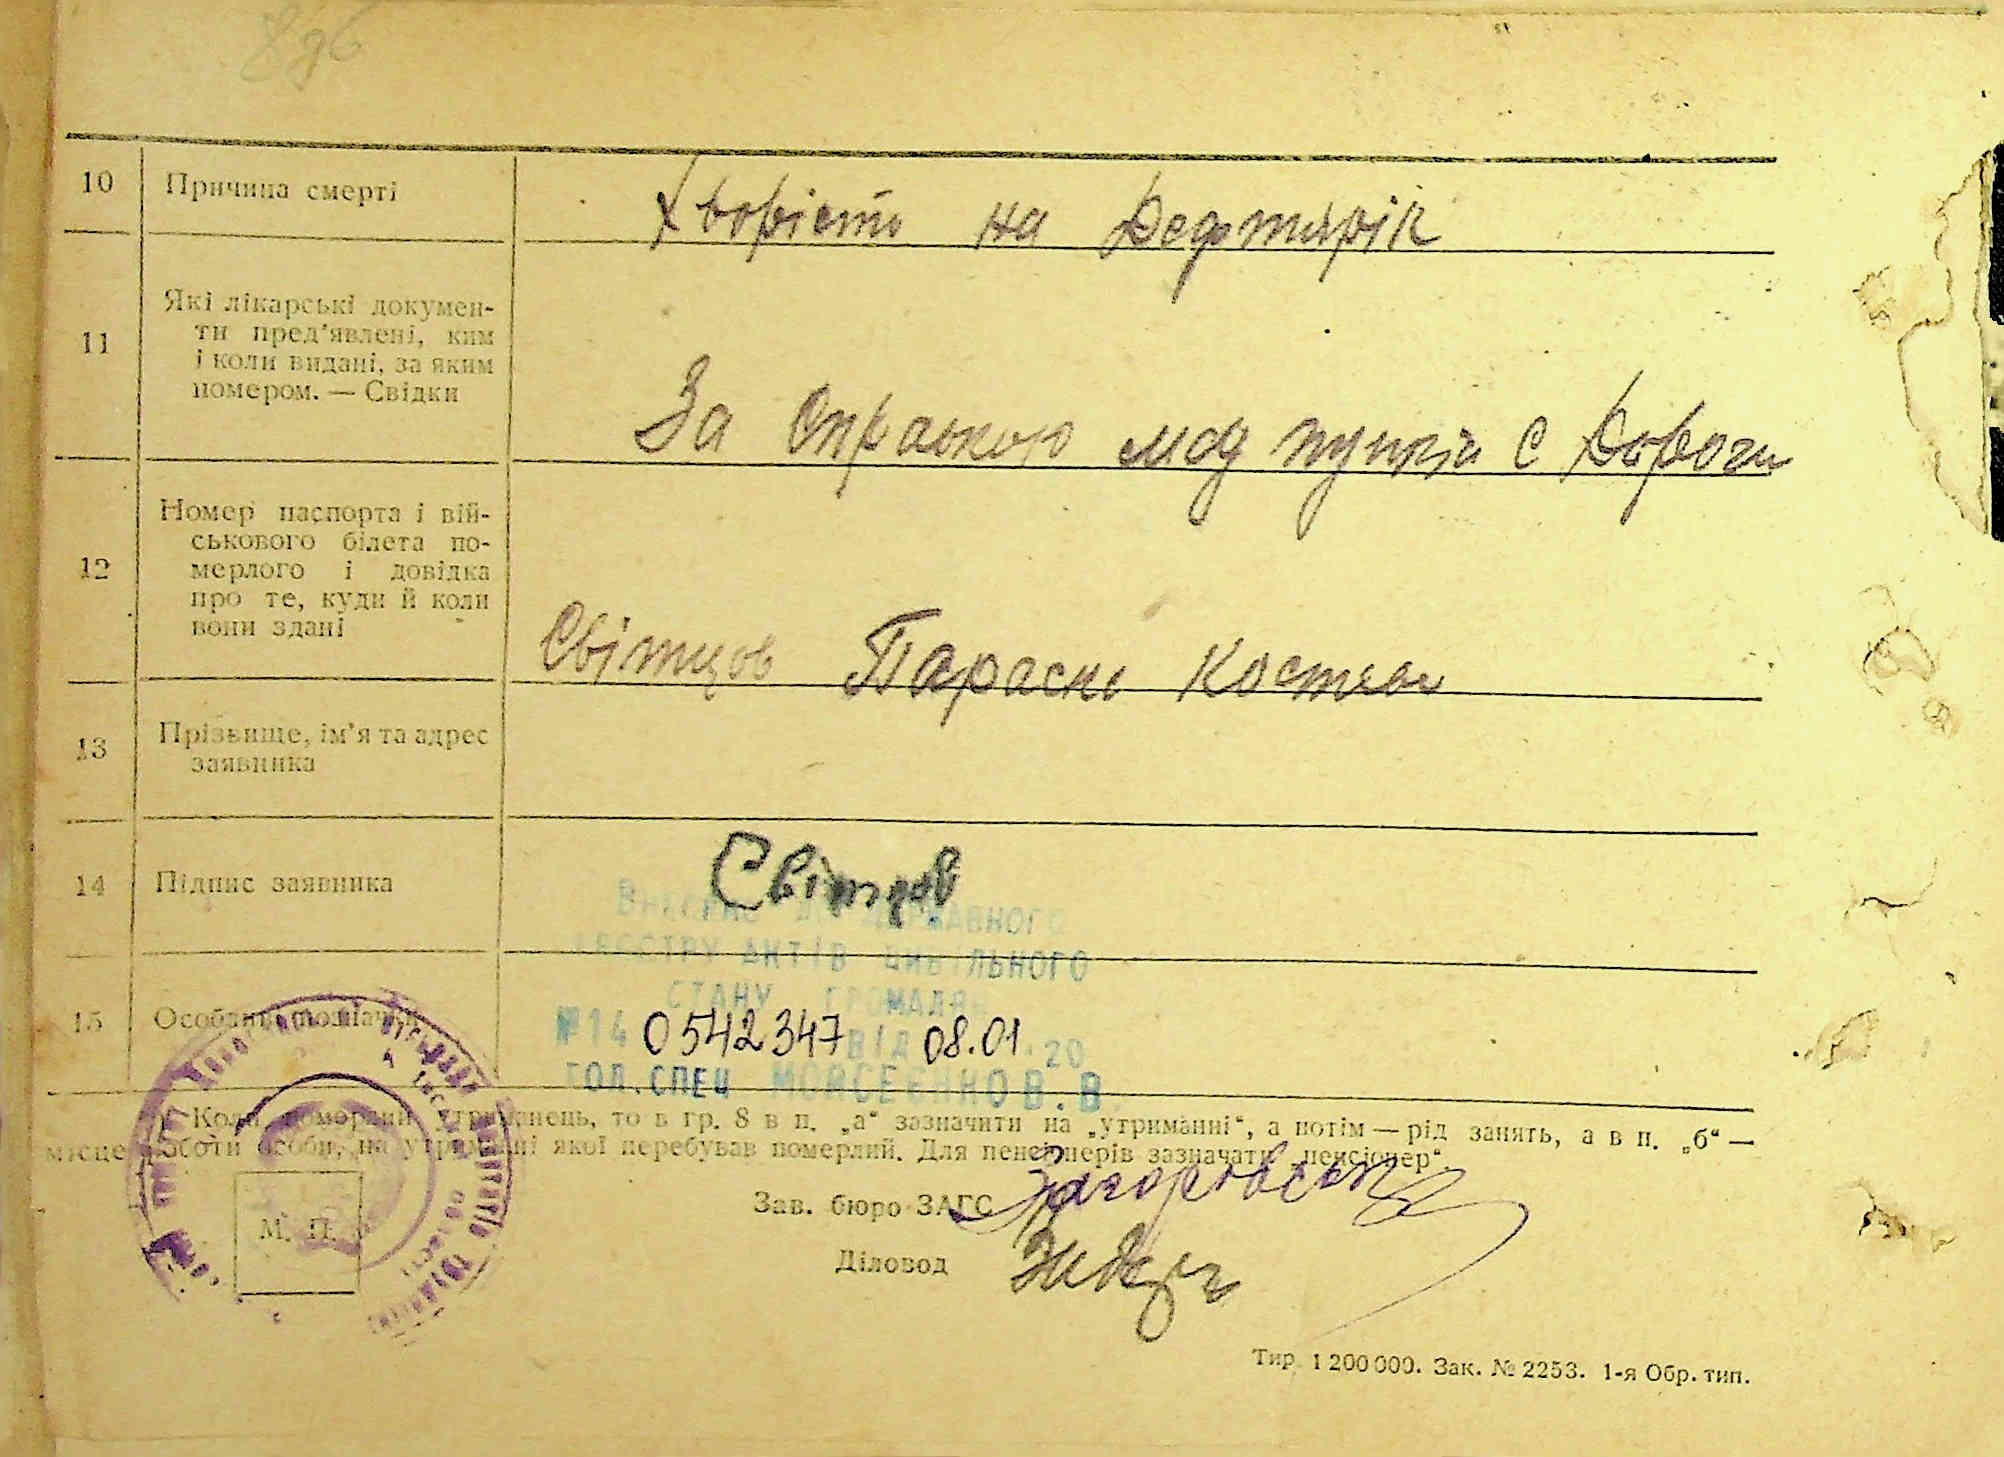 10 Причина смерті
Хворість на Дефтирік
11 Які лікарські докумен-
ти пред'явлені, ким
і коли видані, за яким
номером. — Свідки
За Справкою мед пункта с Дороги
12 Номер паспорта і вій-
ськового білета по-
мерлого і довідка
про те, куди й коли
вони здані
Світцов Параска
13 Прізвище, ім'я та адрес
заявника
14 Підпис заявника
Світцов
ВНЕСЕНО ДО ДЕРЖАВНОГО
РЕЄСТРУ АКТІВ ЦИВІЛЬНОГО
СТАНУ ГРОМАДЯН
15 Особливі позначки
№14 0542347 ВІД 08.01.20
ГОЛ.СПЕЦ МОЙСЕЄНКО В.В
Коли померлий утриманець, то в гр. 8 в п. „а“ зазначити на „утриманні“, а потім — рід занять, а в п. „б“ —
місце роботи особи, на утриманні якої перебував померлий. Для пенсіонерів зазначати „пенсіонер“.
Зав. бюро ЗАГС
М. П.
Діловод
Тир. 1 200 000. Зак. № 2253. 1-я Обр. тип.